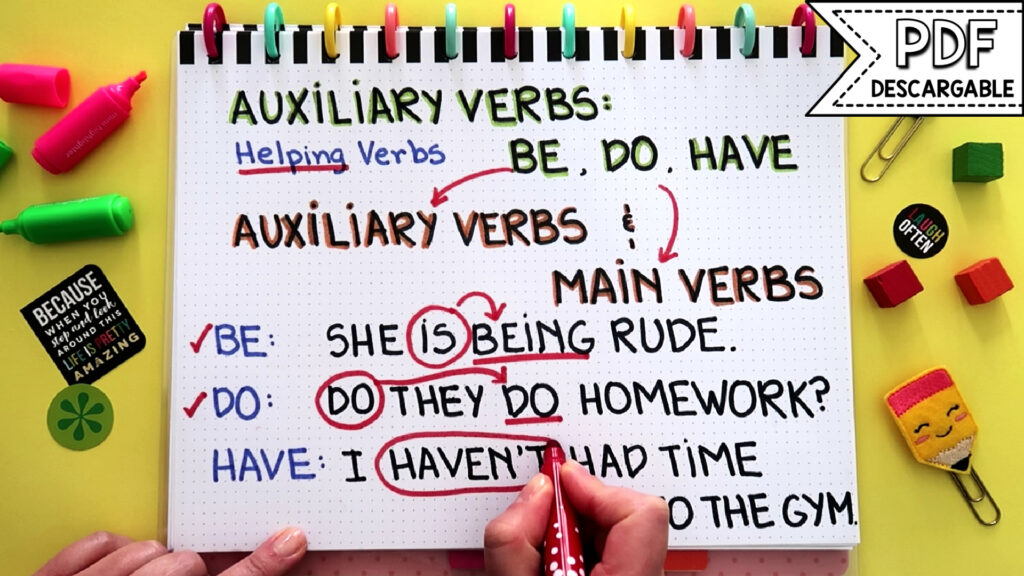 PDF
DESCARGABLE
AUXILIARY VERBS:
Helping Verbs BE, DO, HAVE
AUXILIARY VERBS &
MAIN VERBS
BE: SHE IS BEING RUDE.
DO: DO THEY DO HOMEWORK?
HAVE: I HAVEN'T HAD TIME
TO THE GYM.
BECAUSE
WHEN YOU
stop and look
AROUND THIS
LIFE IS PRETTY
AMAZING
LAUGH
OFTEN